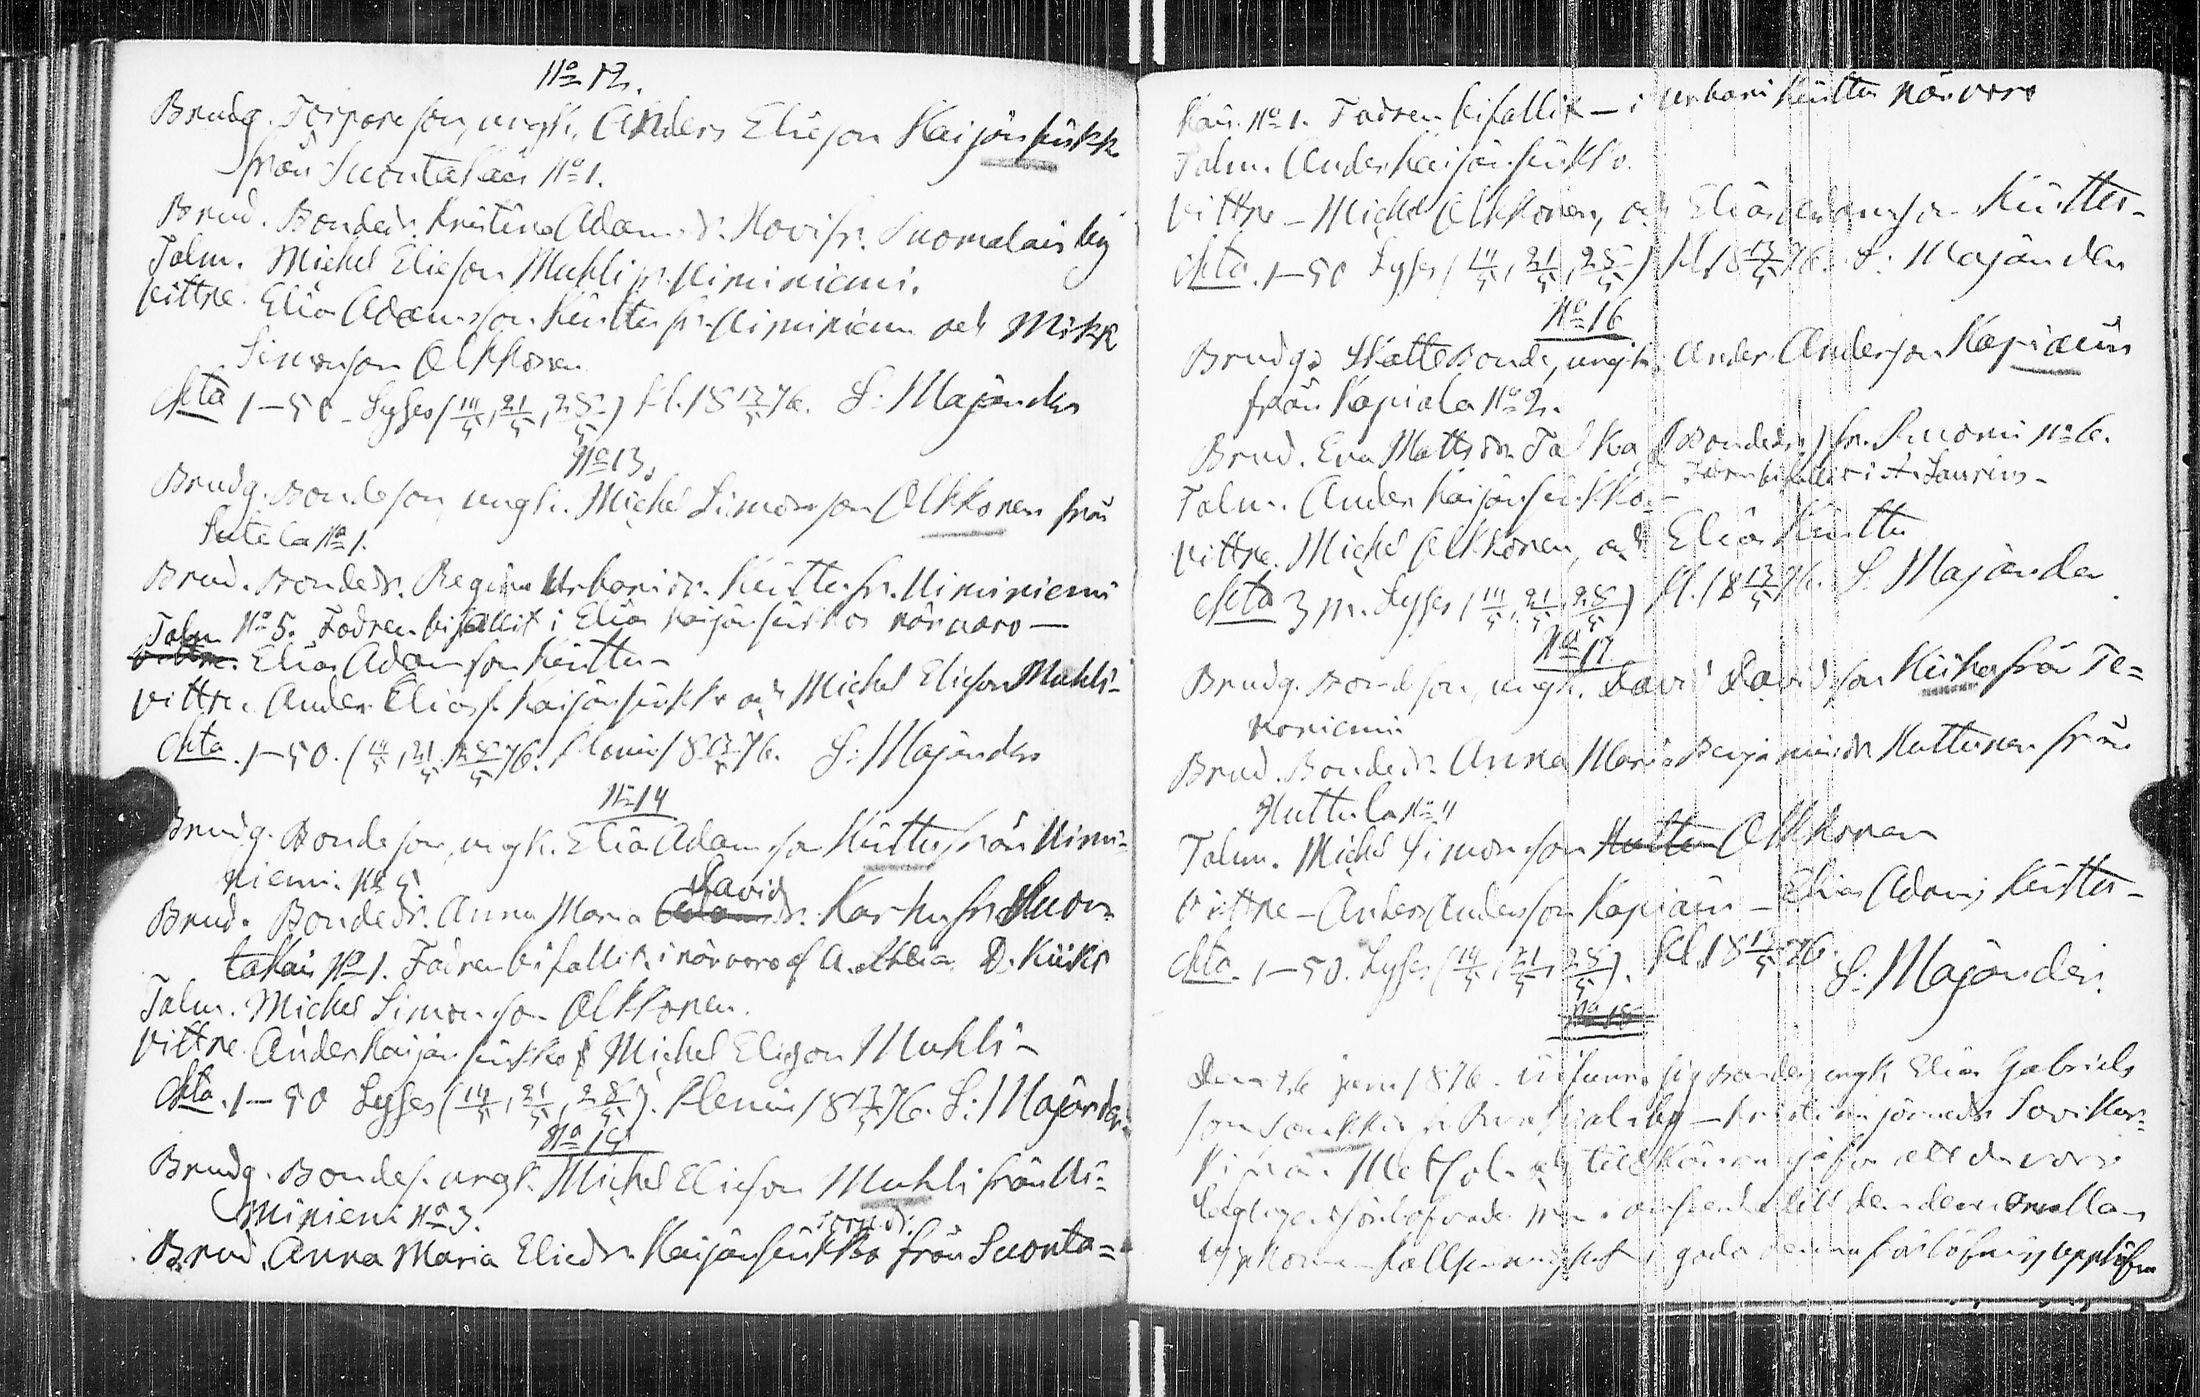 No 12.
Brudg. Torpareson, ungk. Anders Elieson Kaijansinkk
från Suontakais No 1.
Brud. Bondedr. Kristina Adamsdr. Hovi fr. Suomalais by
Talm. Michel Elieson Muhli fr. Niminiemi.
Vittne. Elias Adamsson Küttu fr. Niminiemi och Mikk
Simonson Olkkonen
Akta 1–50 – Lyses (14/5, 21/5, 28/5) Kl. 18 13/5 76. S: Majander
No 13.
Brudg. Bondeson, ungk. Michel Simonson Olkkonen från
Sutela No 1.
Brud. Bondedr. Regina Urbanidr. Küttu fr. Niminiemi
Talm No 5. Fadren bifallit i Elias Kaijansinkkos närvaro –
Vittne. Elias Adamsson Küttu –
Vittne. Anders Eliass. Kaijansinkko och Michel Elieson Muhli –
Akta. 1–50. (14/5, 21/5, 28/5 76. Klemis 18 13/5 76. S: Majander
No 14
Brudg. Bondeson, ungk. Elias Adamsson Küttu från Nimi-
niemi. No 5.
David
Brud. Bondedr. Anna Maria Adamsdr. Karhu fr Suon-
takais No 1. Fadren bifallit i närvaro af A. D. Kiiki
Talm. Michel Simonson Olkkonen.
Vittne. Anders Kaijansinkko & Michel Elieson Muhli –
Akta. 1–50 Lyses (14/5, 21/5, 28/5). Klemis 18 13/5 76. S: Majander
No 15
Brudg. Bondes. ungk. Michel Elieson Muhli från Ni-
miniemi No 3.
Brud. Anna Maria Eliedr. Kaijansinkko från Suonta-
kais. No 1. Fadren bifallit – i Urbani Küttus närvaro
Talm. Anders Kaijansinkko.
Vittne – Michel Olkkonen, och Elias Adamsson Küttu –
Akta. 1–50 Lyses (14/5, 21/5, 28/5) Kl. 18 13/5 76. S: Majander
No 16
Brudg. Skattebonde, ungk. Anders Anderson Kapiain
från Kapiala No 2.
Brud. Eva Mattsdr. Talka (Bondedr.) fr. Ruomi No 6.
Talm. Anders Kaijansinkko. –
Vittne. Michel Olkkonen, och Elias Küttu
Akta 3 m. Lyses (14/5, 21/5, 28/5) Kl. 18 13/5 76. S. Majander
No 17
Brudg. Bondeson, ungk. David Davidson Kiiki från Te-
roniemi
Brud. Bondedr. Anna Maria Benjaminidr Huttunen från
Huttula No 4
Talm. Michel Simonson Huttu Olkkonen
Vittne – Anders Anderson Kapiain – Elias Adams Küttu –
Akta. 1–50. Lyses (14/5, 21/5, 28/5). Kl. 18 13/5 76.
S. Majander.
No 18
Den 26 juni 1876. infunno sig Bondes ungk Elias Gabriels
son
från Metsola och tillkänna
förlofvade
förlofning upplösen